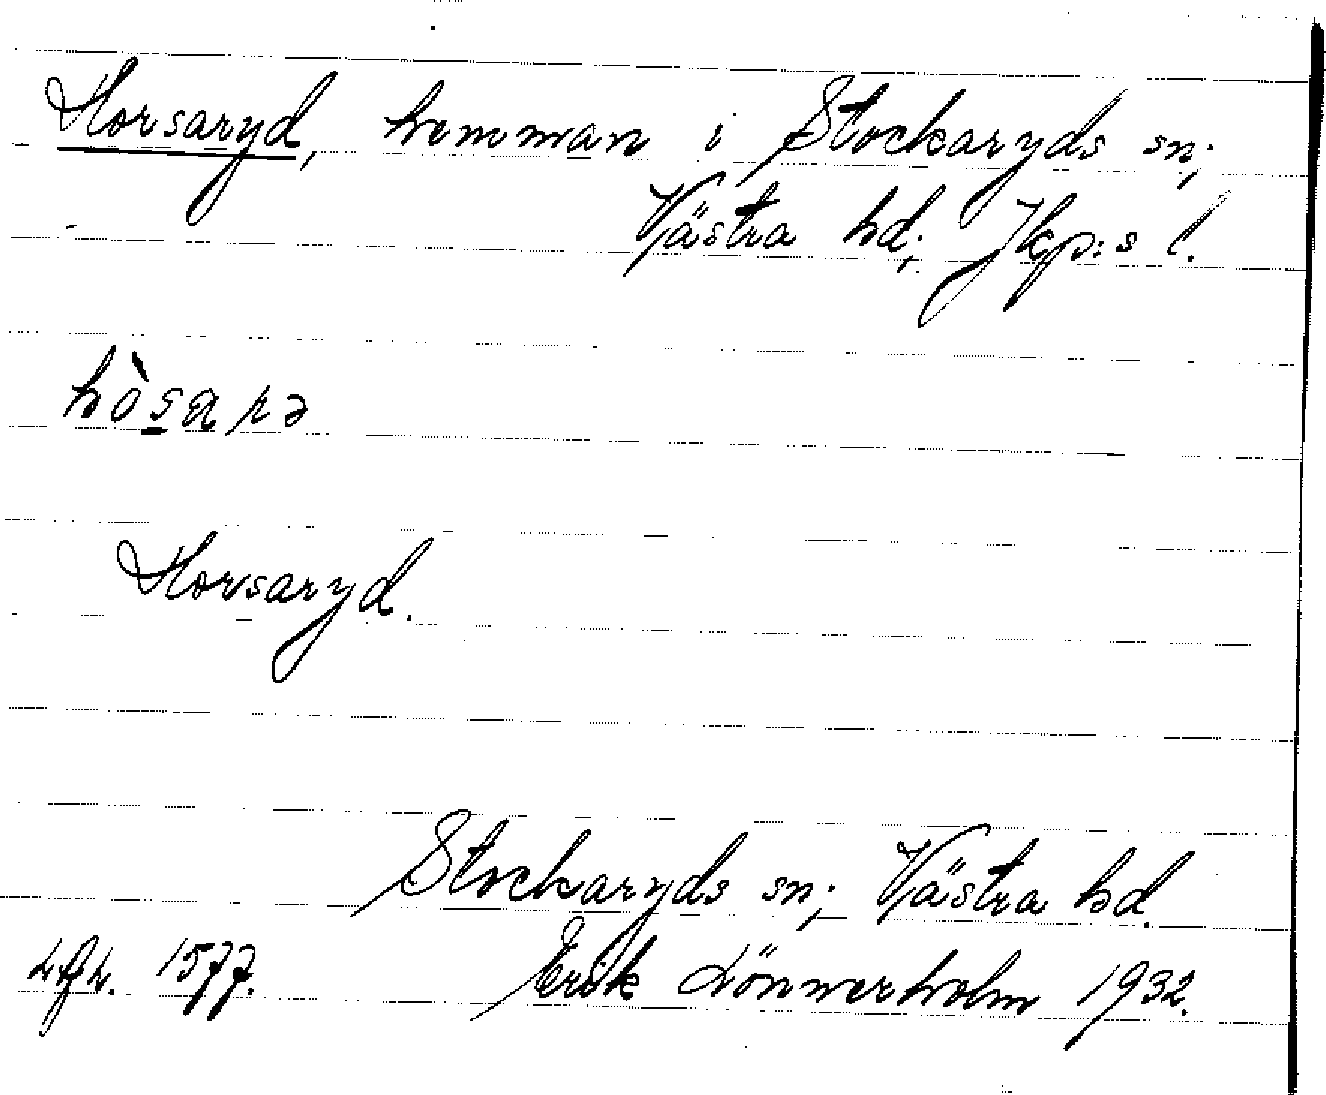 Horsaryd, hemman i Stockaryds sn;
Västra hd; Jkp:s l.
hòsarə
Horsaryd.
Stockaryds sn; Västra hd.
Lfl. 1577. Erik Lönnerholm 1932.